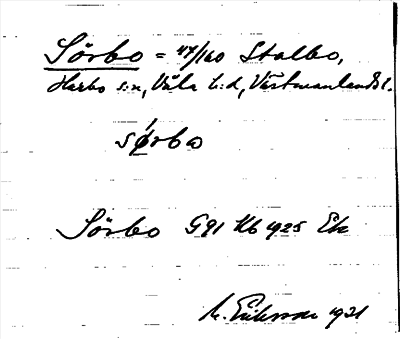 Sörbo = 47/160 Stalbo,
Harbo s:n, Våla h:d, Västmanlands l.
sǿrbω
Sörbo G91 Hb 1925 Ek
M. Eriksson 1931